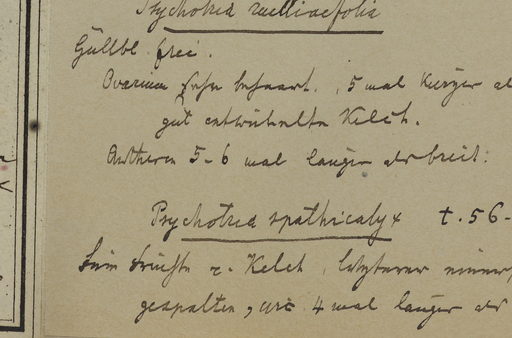 Psychotria ruelliaefolia
Hüllbl. frei.
Ovarium sehr behaart, 5 mal kürzer al
gut entwickelten Kelch.
Antheren 5-6 mal länger als breit.
Psychotria spathicalyx t. 56-
Kelch, letzterer
gespalten, 4 mal länger als